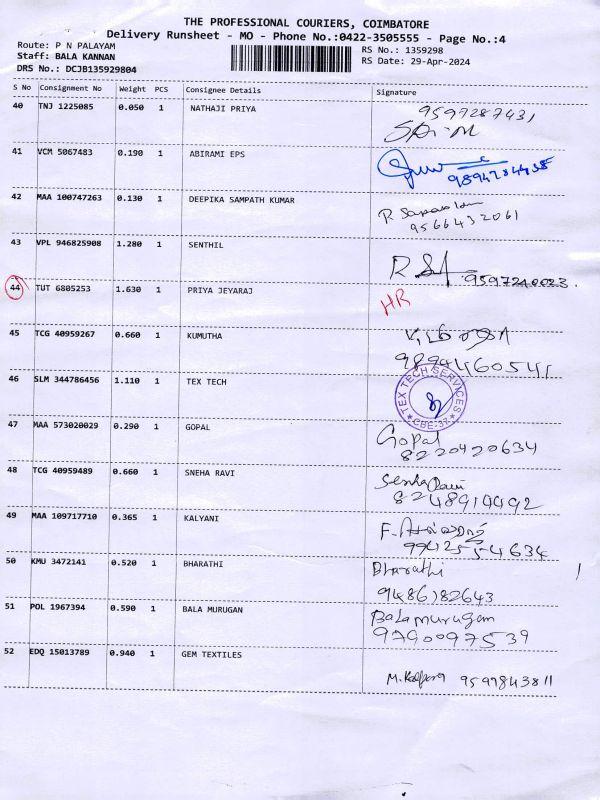 THE PROFESSIONAL COURIERS, COIMBATORE
Delivery Runsheet - MO - Phone No.:0422-3505555 - Page No.:4
Route: P N PALAYAM
Staff: BALA KANNAN
DRS No.: DCJB135929804
RS No.: 1359298
RS Date: 29-Apr-2024
S No Consignment No Weight PCS Consignee Details Signature
40 TNJ 1225085 0.050 1 NATHAJI PRIYA
9597287431
41 VCM 5067483 0.190 1 ABIRAMI EPS
42 MAA 100747263 0.130 1 DEEPIKA SAMPATH KUMAR
9566432061
43 VPL 946825908 1.280 1 SENTHIL
9597240023.
44 TUT 6805253 1.630 1 PRIYA JEYARAJ
HR
45 TCG 40959267 0.660 1 KUMUTHA
9894460541
46 SLM 344786456 1.110 1 TEX TECH
TEX TECH SERVICES
CBE-37
47 MAA 573020029 0.290 1 GOPAL
Gopal
8220420634
48 TCG 40959489 0.660 1 SNEHA RAVI
49 MAA 109717710 0.365 1 KALYANI
9942554634
50 KMU 3472141 0.520 1 BHARATHI
Bharathi
9486182643
51 POL 1967394 0.590 1 BALA MURUGAN
Balamurugan
9790097539
52 EDQ 15013789 0.940 1 GEM TEXTILES
9597843811